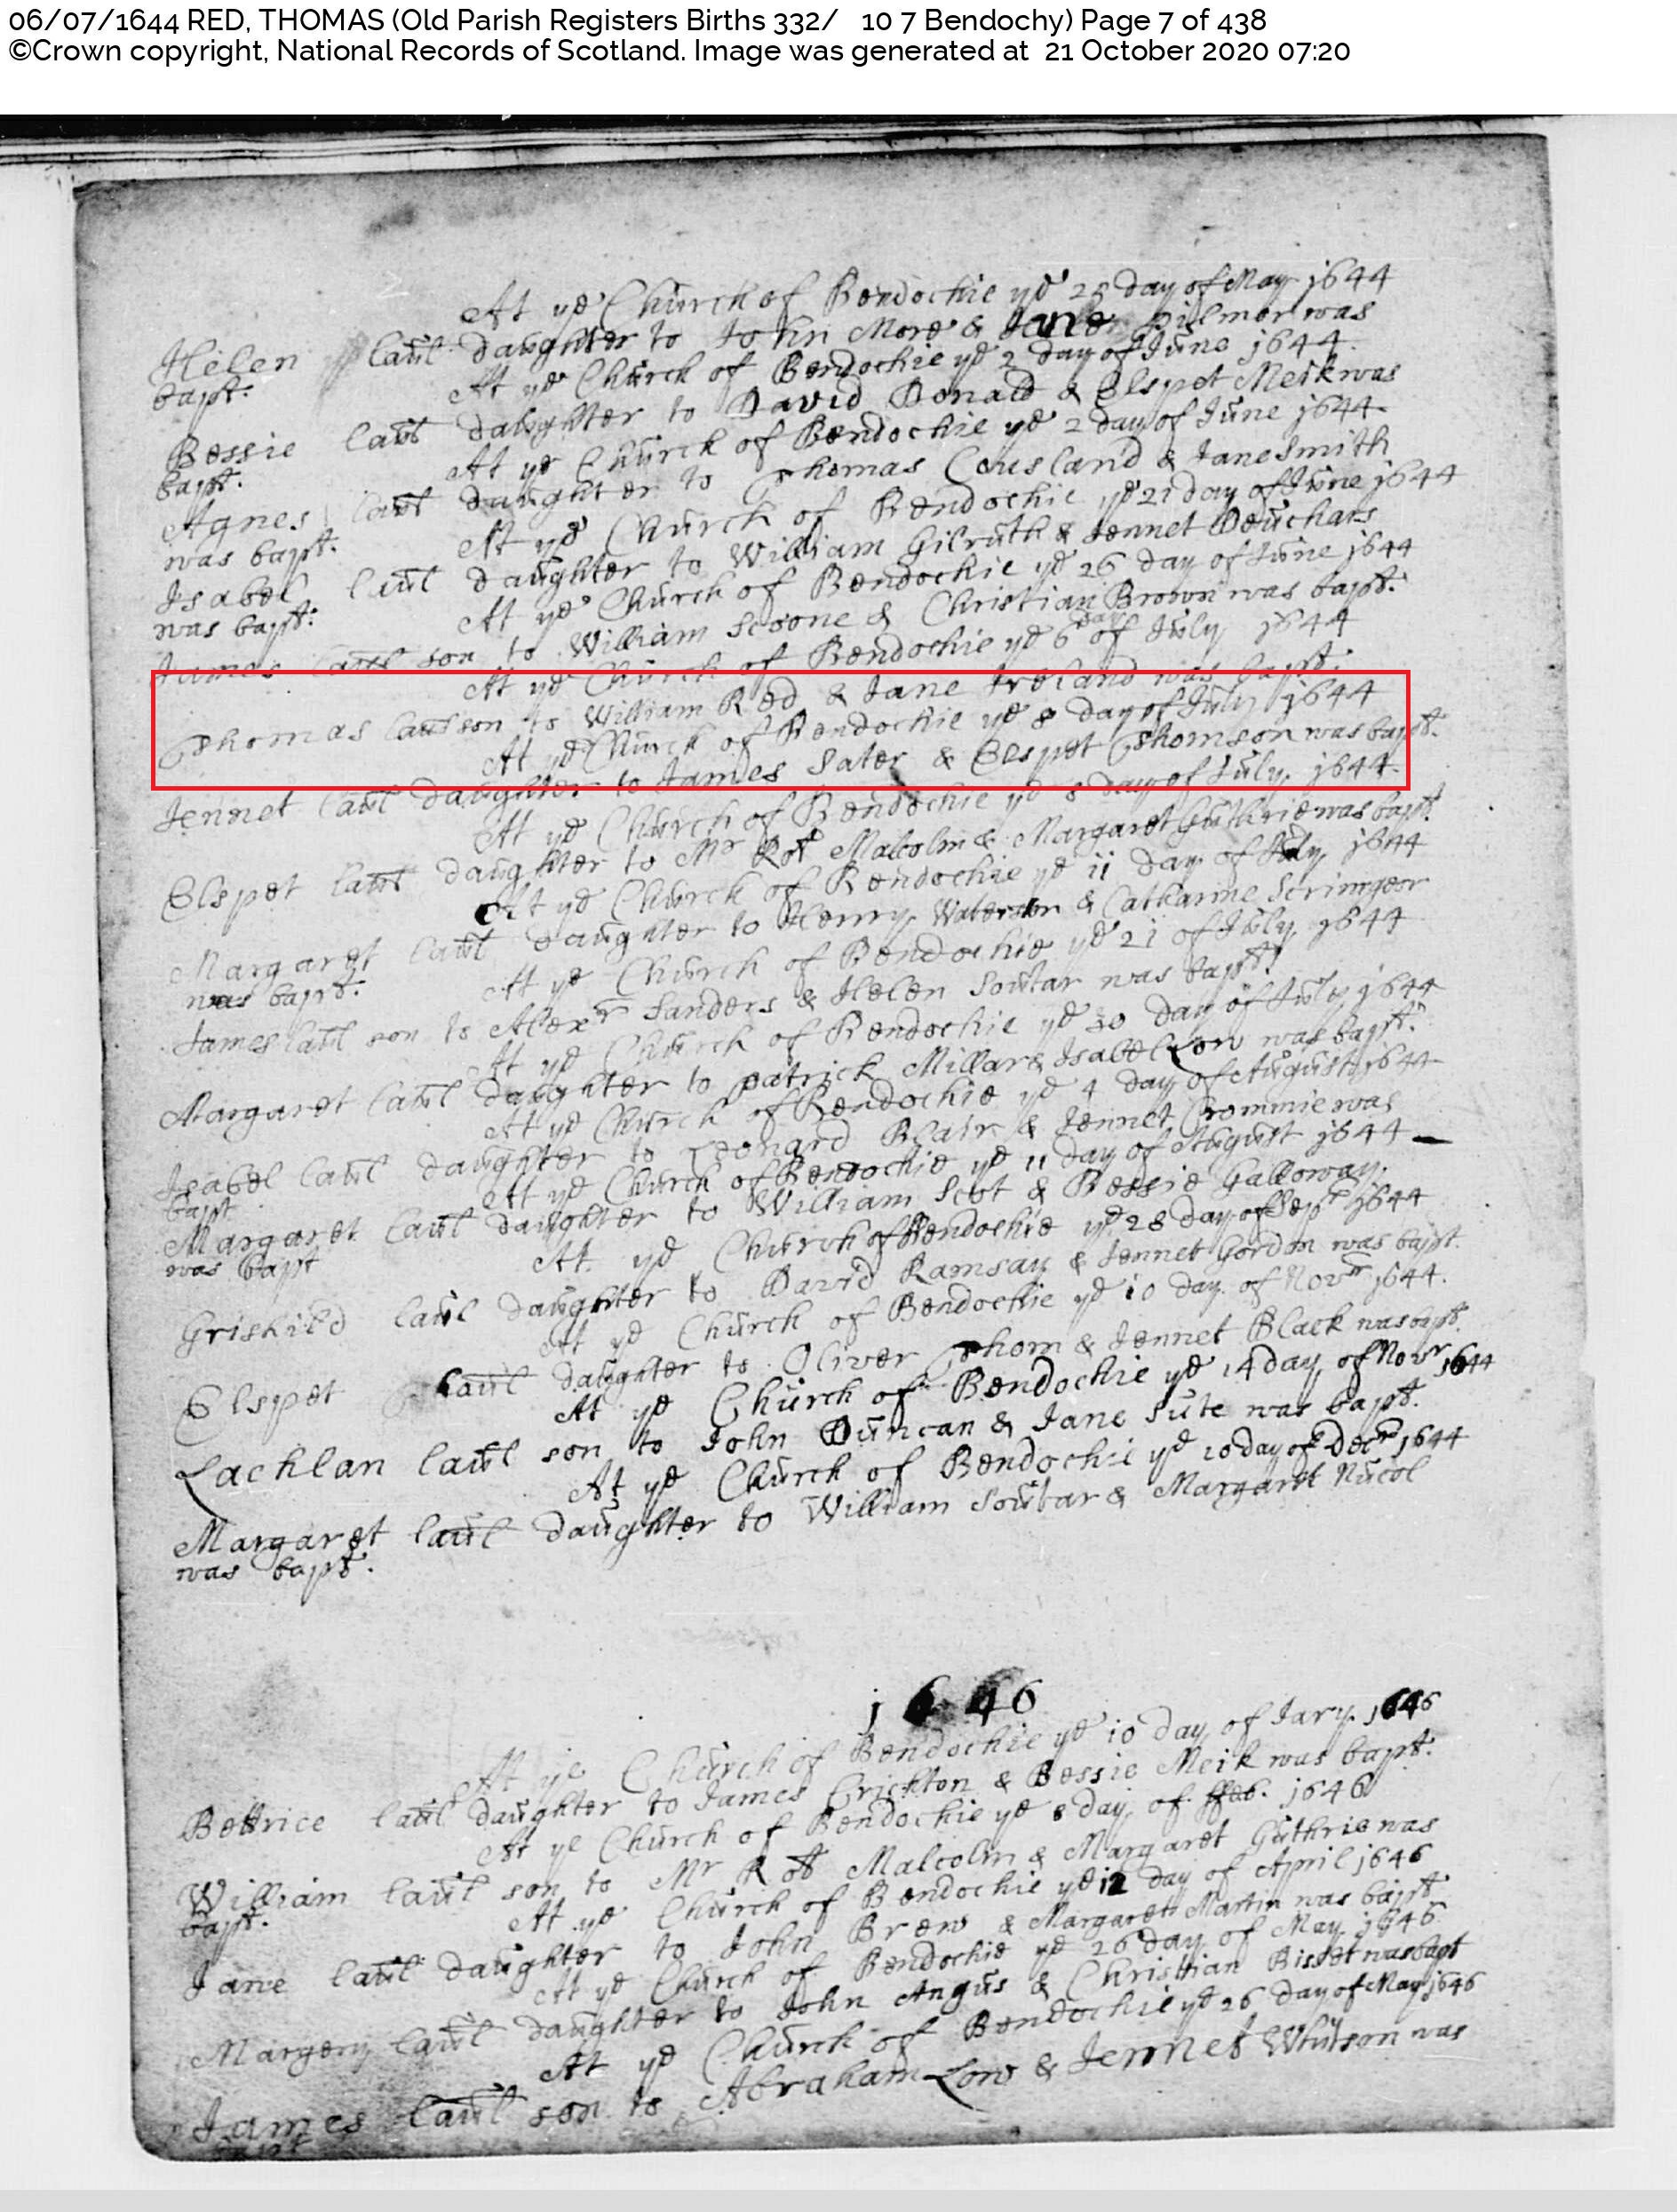 06/07/1644 RED, THOMAS (Old Parish Registers Births 332/ 10 7 Bendochy) Page 7 of 438
©Crown copyright, National Records of Scotland. Image was generated at 21 October 2020 07:20
At ye Church of Bendochie ye 28 day of May 1644
Helen laul daughter to John More & Jane Gilmor was
bapt:
At ye Church of Bendochie ye 2 day of June 1644.
Bessie laul daughter to David Donald & Elspet Meik was
bapt:
At ye Church of Bendochie ye 2 day of June 1644
Agnes laul daughter to Thomas Cousland & Jane Smith
was bapt.
At ye Church of Bendochie ye 21 day of June 1644
Isabel laul daughter to William Gilruth & Jennet Deuchars
was bapt:
At ye Church of Bendochie ye 26 day of June 1644
James laul son to William Scoone & Christian Brown was bapt.
At ye Church of Bendochie ye 6 day of July 1644
Thomas laul son to William Red & Jane Ireland was bapt.
At ye Church of Bendochie ye 8 day of July 1644
Jennet laul daughter to James Sater & Elspet Thomson was bapt.
At ye Church of Bendochie ye 8 day of July. 1644.
Elspet laul daughter to Mr Rot Malcolm & Margaret Guthrie was bapt.
At ye Church of Bendochie ye 11 day of July 1644
Margaret laul daughter to Henry & Catharine Scrimgeor
was bapt.
At ye Church of Bendochie ye 21 of July. 1644
James laul son to Alexr Sanders & Helen Soutar was bapt.
At ye Church of Bendochie ye 30 day of July 1644
Margaret laul daughter to patrick Millar & Isabel Low was bapt.
At ye Church of Bendochie ye 4 day of August 1644
Isabel laul daughter to Leonard Blair & Jennet Crommie was
bapt
At ye Church of Bendochie ye 11 day of August 1644
Margaret laul daughter to William Scot & Bessie Galloway.
was bapt
At ye Church of Bendochie ye 28 day of Sepr 1644
Griskild laul daughter to David Ramsay & Jennet Gordon was bapt.
At ye Church of Bendochie ye 10 day of Novr 1644.
Elspet laul daughter to Oliver Thom & Jennet Black was bapt.
At ye Church of Bendochie ye 14 day of Novr 1644
Lachlan laul son to John Duncan & Jane Sute was bapt.
At ye Church of Bendochie ye 10 day of Decr 1644
Margaret laul daughter to William Soutar & Margaret Nucol
was bapt.
1646
At ye Church of Bendochie ye 10 day of Jary. 1646
Bettrice laul daughter to James Crichton & Bessie Meik was bapt.
At ye Church of Bendochie ye 8 day of ffeb. 1646
William laul son to Mr Rot Malcolm & Margaret Guthrie was
bapt.
At ye Church of Bendochie ye 12 day of April 1646
Jane laul daughter to John Brew & Margaret Martin was bapt
At ye Church of Bendochie ye 26 day of May 1646
Margery laul daughter to John Angus & Christian Bisset was bapt
At ye Church of Bendochie ye 26 day of May 1646
James laul son to Abraham Low & Jennet Whitson was
bapt